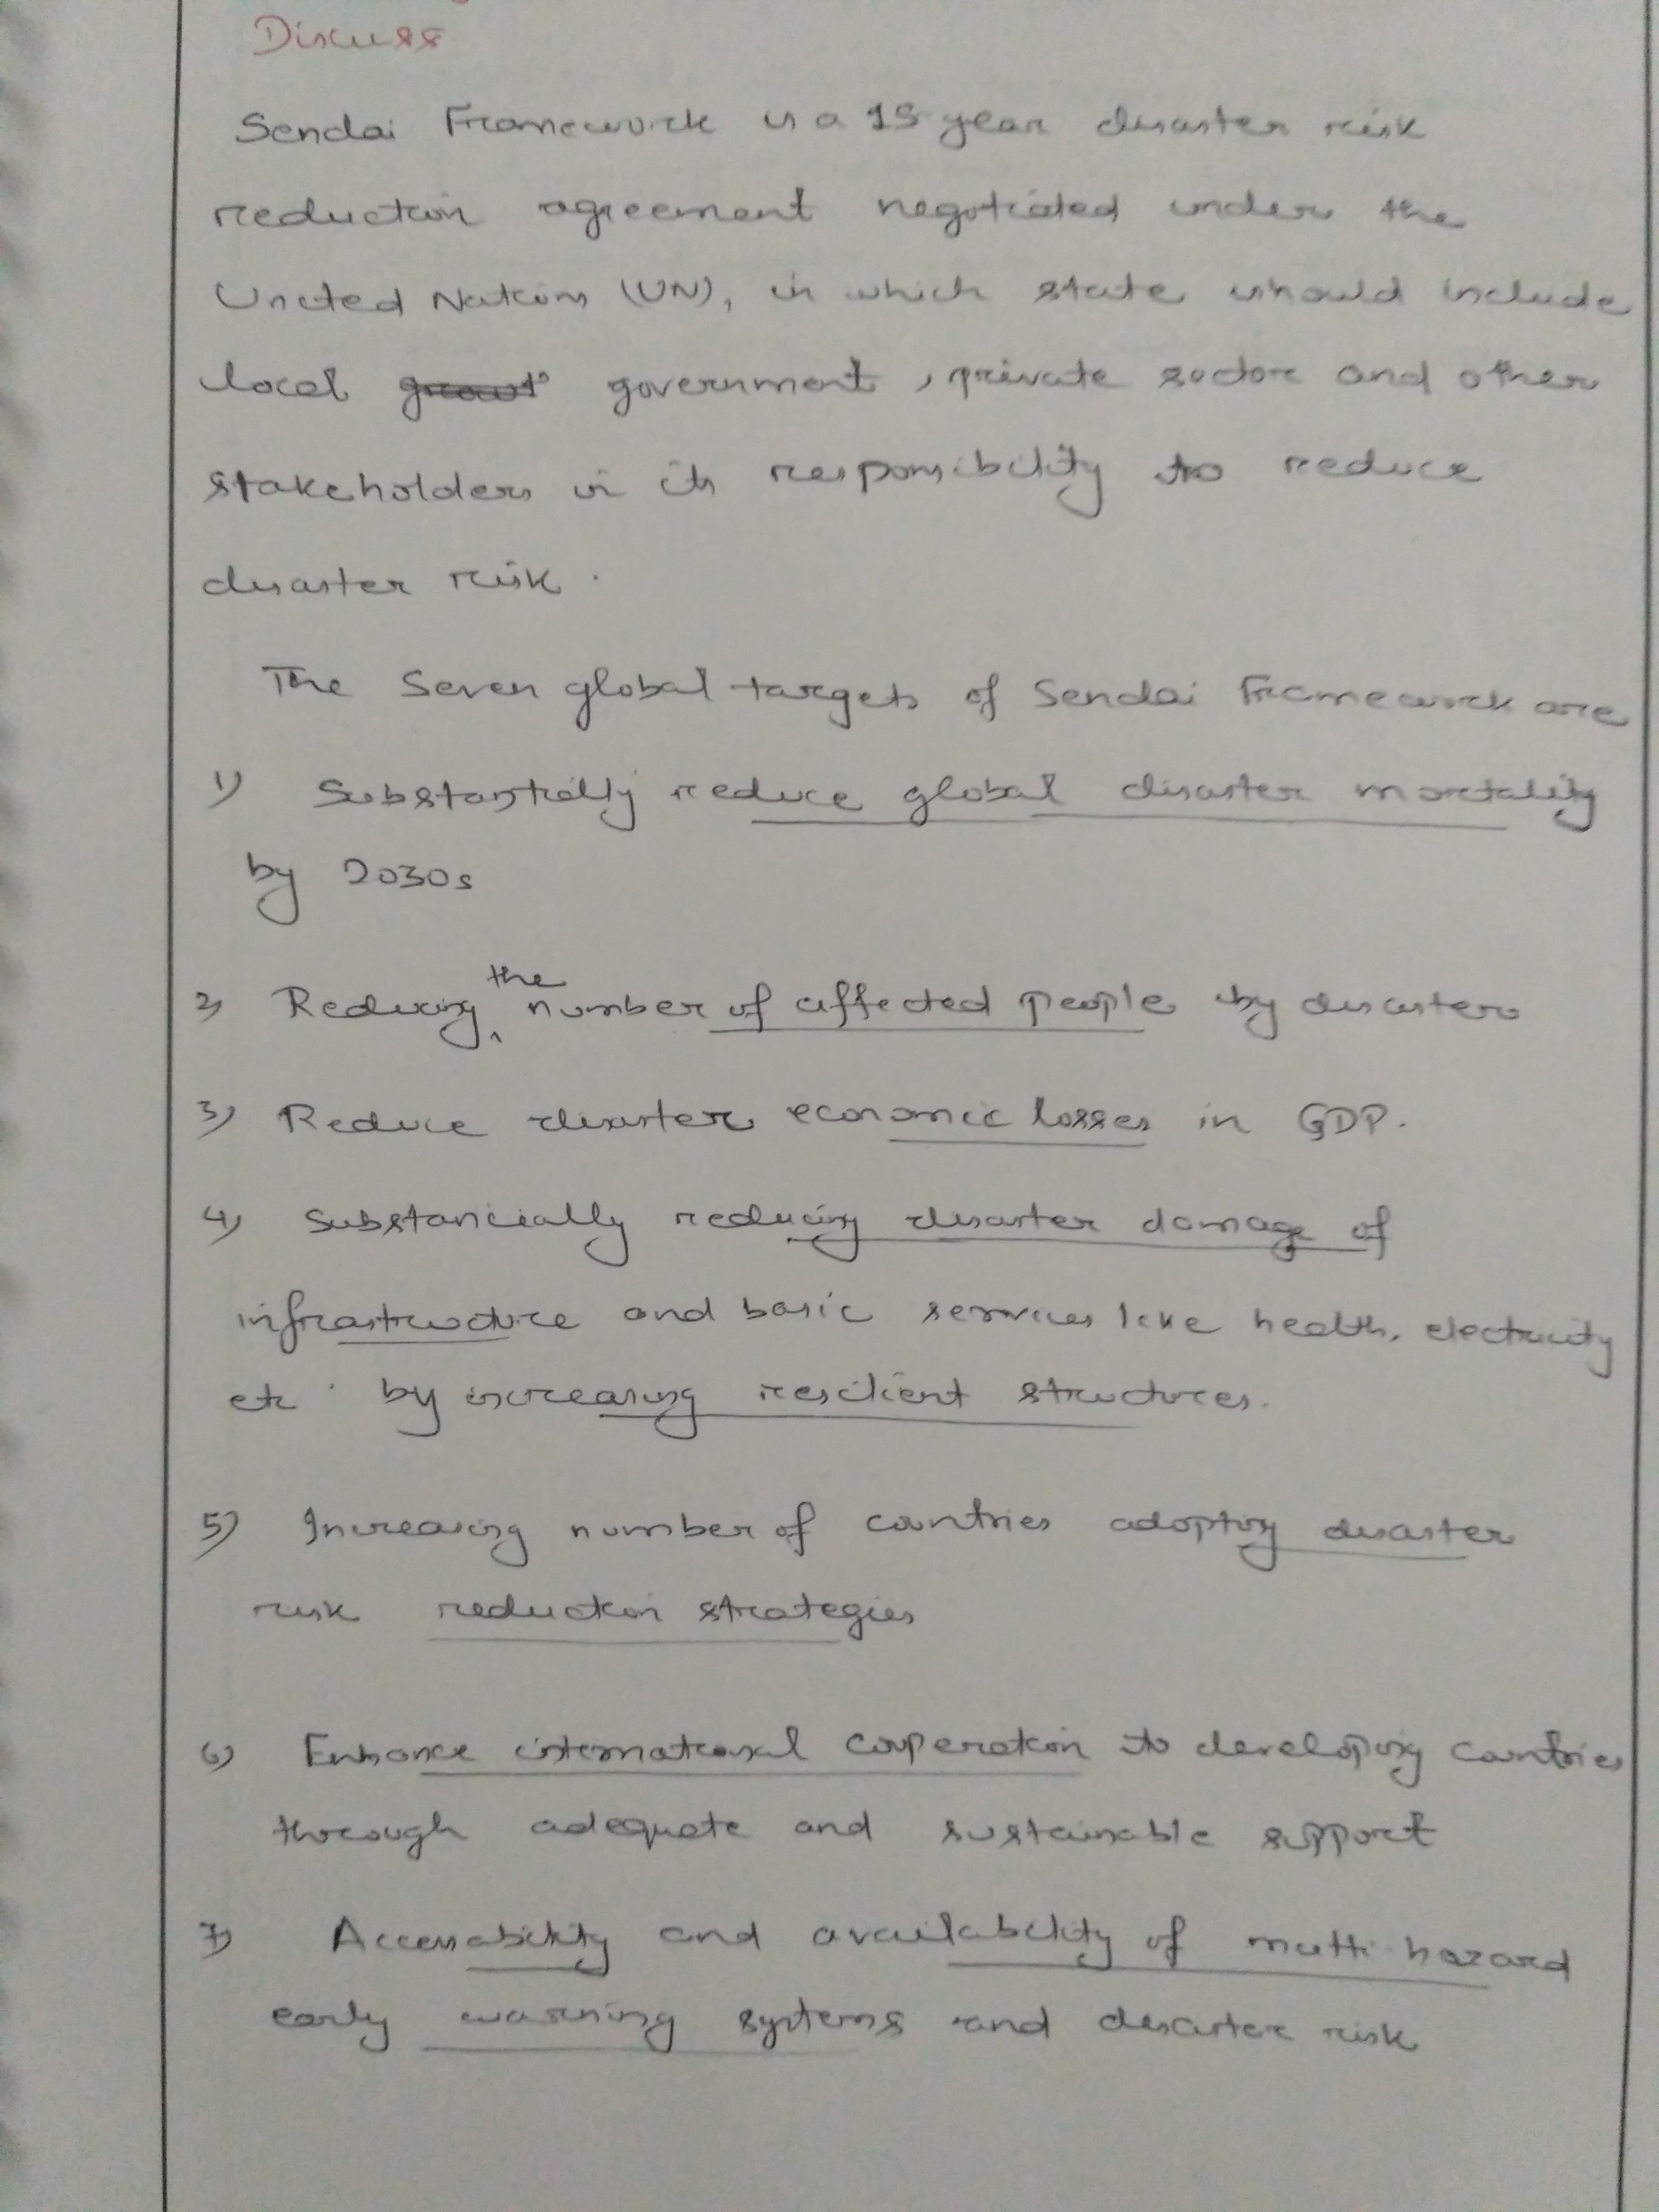 Discuss
Sendai Framework is a 15 year disaster risk
reduction agreement negotiated under the
United Nations (UN), in which state should include
local government, private sector and other
stakeholders in its responsibility to reduce
disaster risk.
The Seven global targets of Sendai Framework are
1) Substantially reduce global disaster mortality
by 2030s
2) Reducing the number of affected people by disasters
3) Reduce disaster economic losses in GDP.
4) Substancially reducing disaster damage of
infrastructure and basic services like health, electricity
etc. by increasing resilient structures.
5) Increasing number of countries adopting disaster
risk reduction strategies
6) Enhance international cooperation to developing countries
through adequate and sustainable support
7) Accessability and availability of multi-hazard
early warning systems and disaster risk